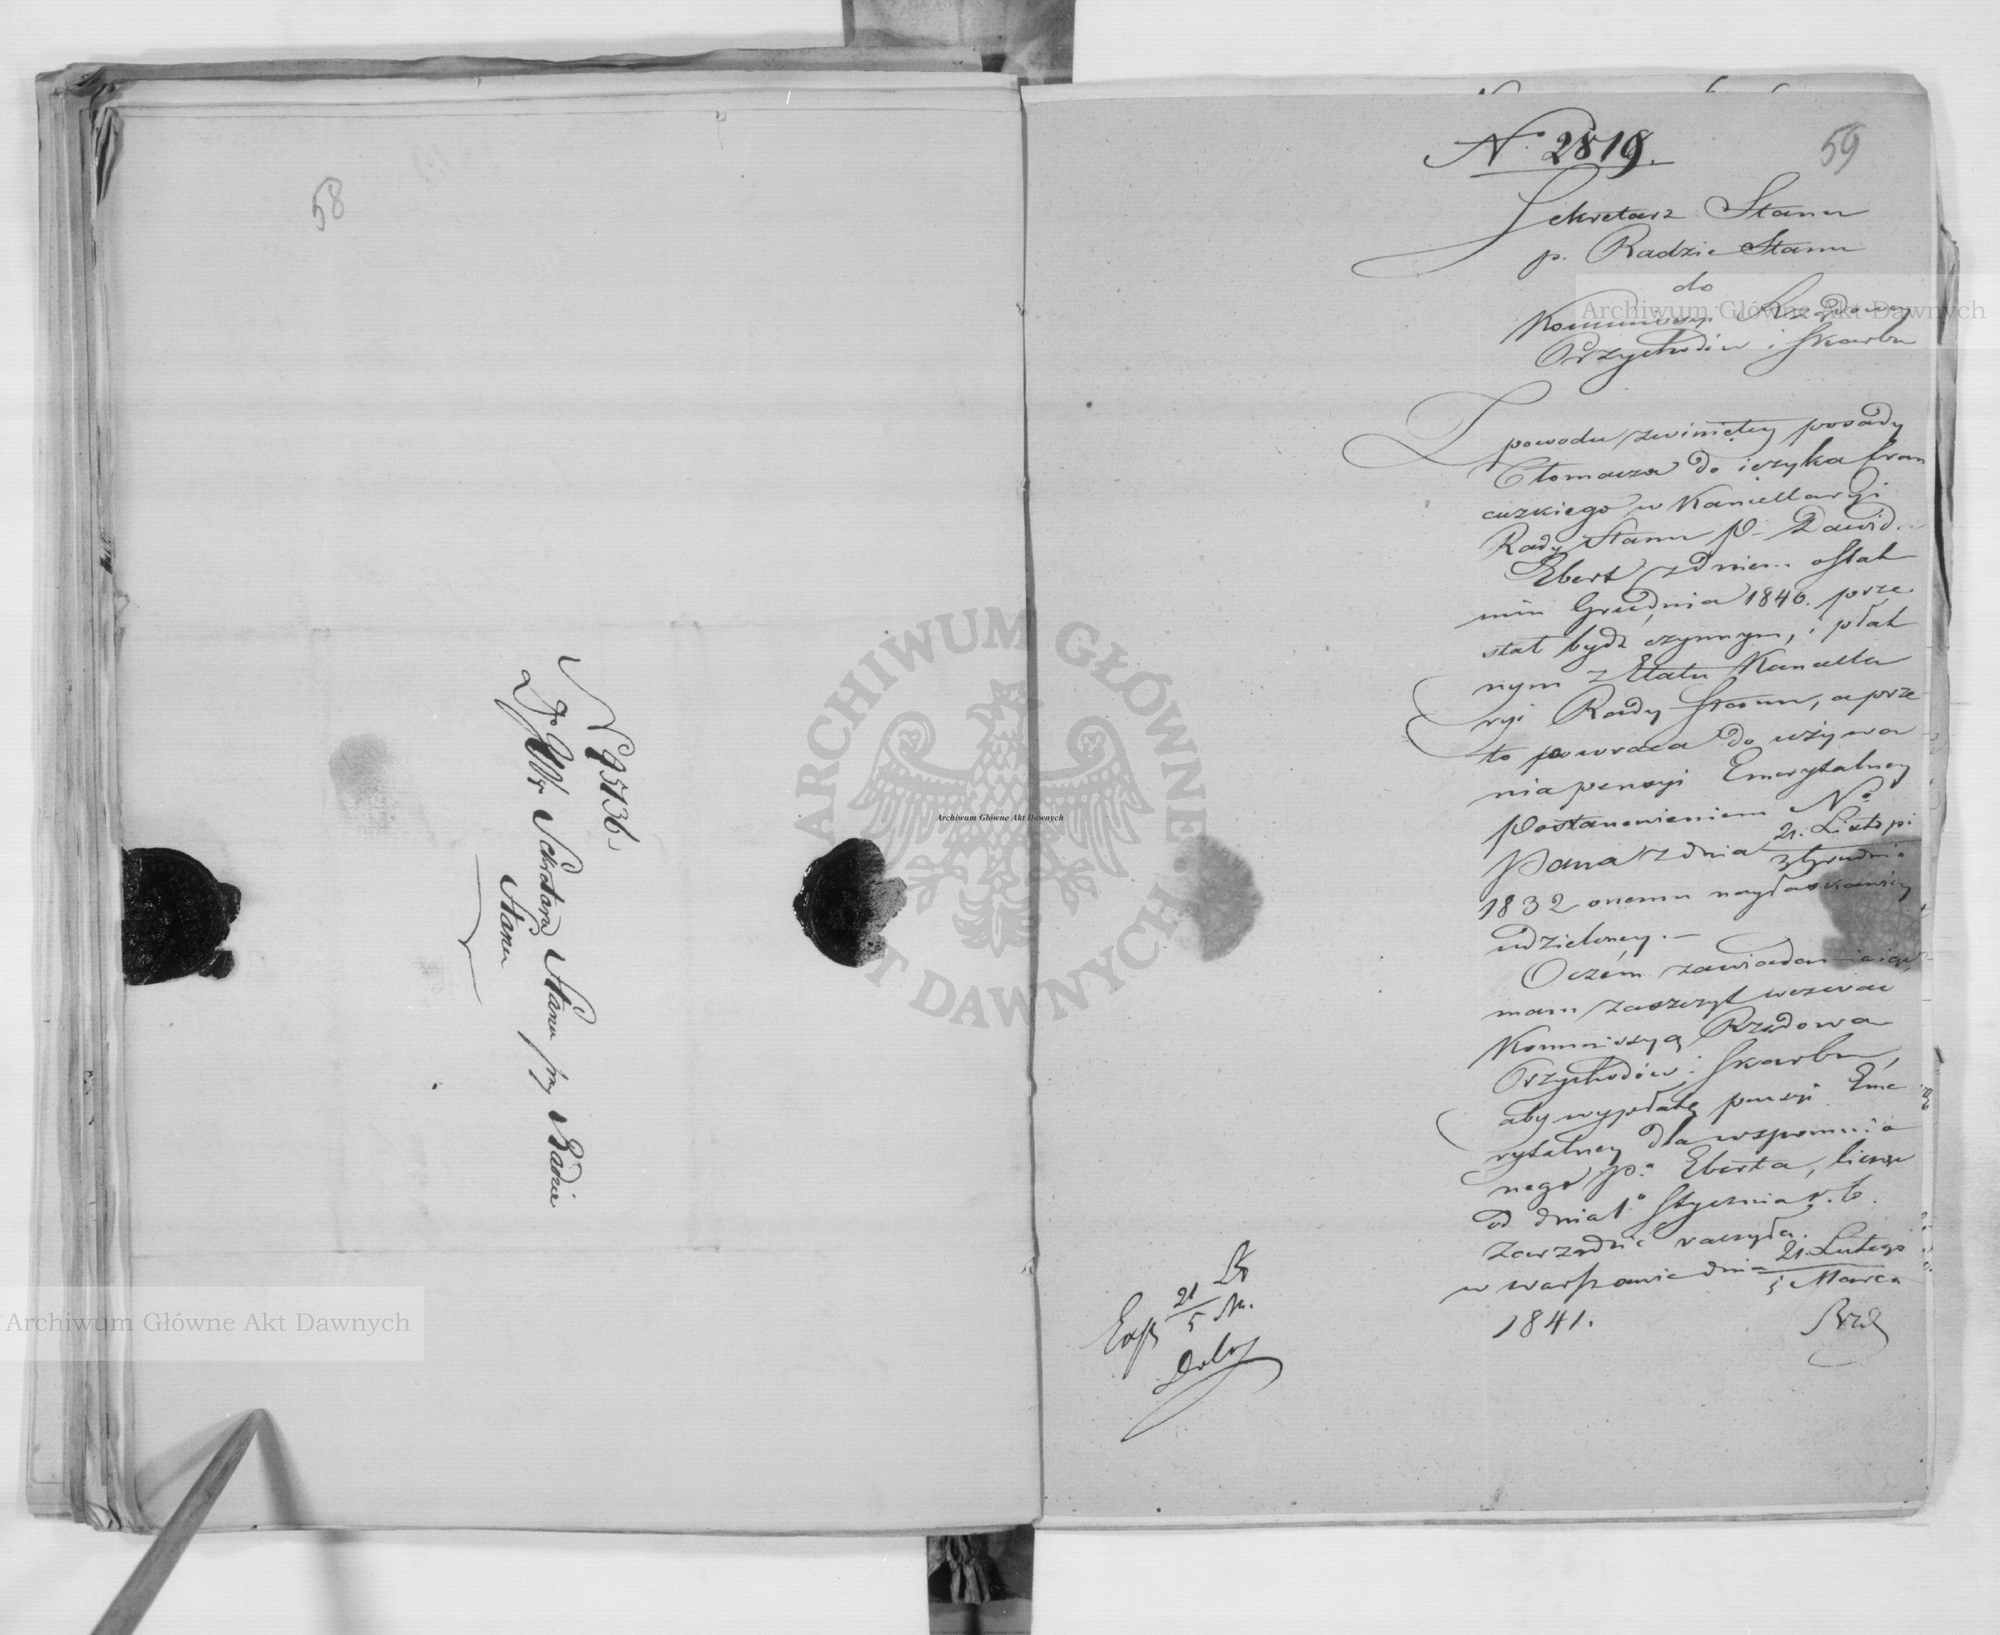 58
N 95136
Do JW Sekretarza Stanu przy Radzie
Stanu
59
N. 2819.
Sekretarz Stanu
p. Radzie Stanu
do
Kommissyi Rządowey
Przychodów i Skarbu
Z powodu zwiniętey posady
Tłomacza do ięzyka fran
cuzkiego w Kancellaryi
Rady Stanu P. Dawid
Ebert z dniem ostat
nim Grudnia 1840. prze
stał bydź czynnym, i płat
nym z Etatu Kancella
ryi Rady Stanu, a prze
to powraca do używa
nia pensyi Emerytalney
Postanowieniem No
Pana z dnia 21. Listop:
3 Grudnia
1832 onemu nayłaskawiey
udzieloney. –
O czém zawiadamiaiąc,
mam zaszczyt wezwać
Kommissyą Rządową
Przychodów i Skarbu,
aby wypłatę pensyi Eme
rytalney dla wspomnio
nego P. Eberta, licząc
od dnia 1o Stycznia r. b.
zarządzić raczyła.
w Warszawie dnia 21. Lutego
5 Marca
1841.
Exp 21
5 M.
Archiwum Główne Akt Dawnych
Archiwum Główne Akt Dawnych
Archiwum Główne Akt Dawnych
ARCHIWUM GŁÓWNE AKT DAWNYCH